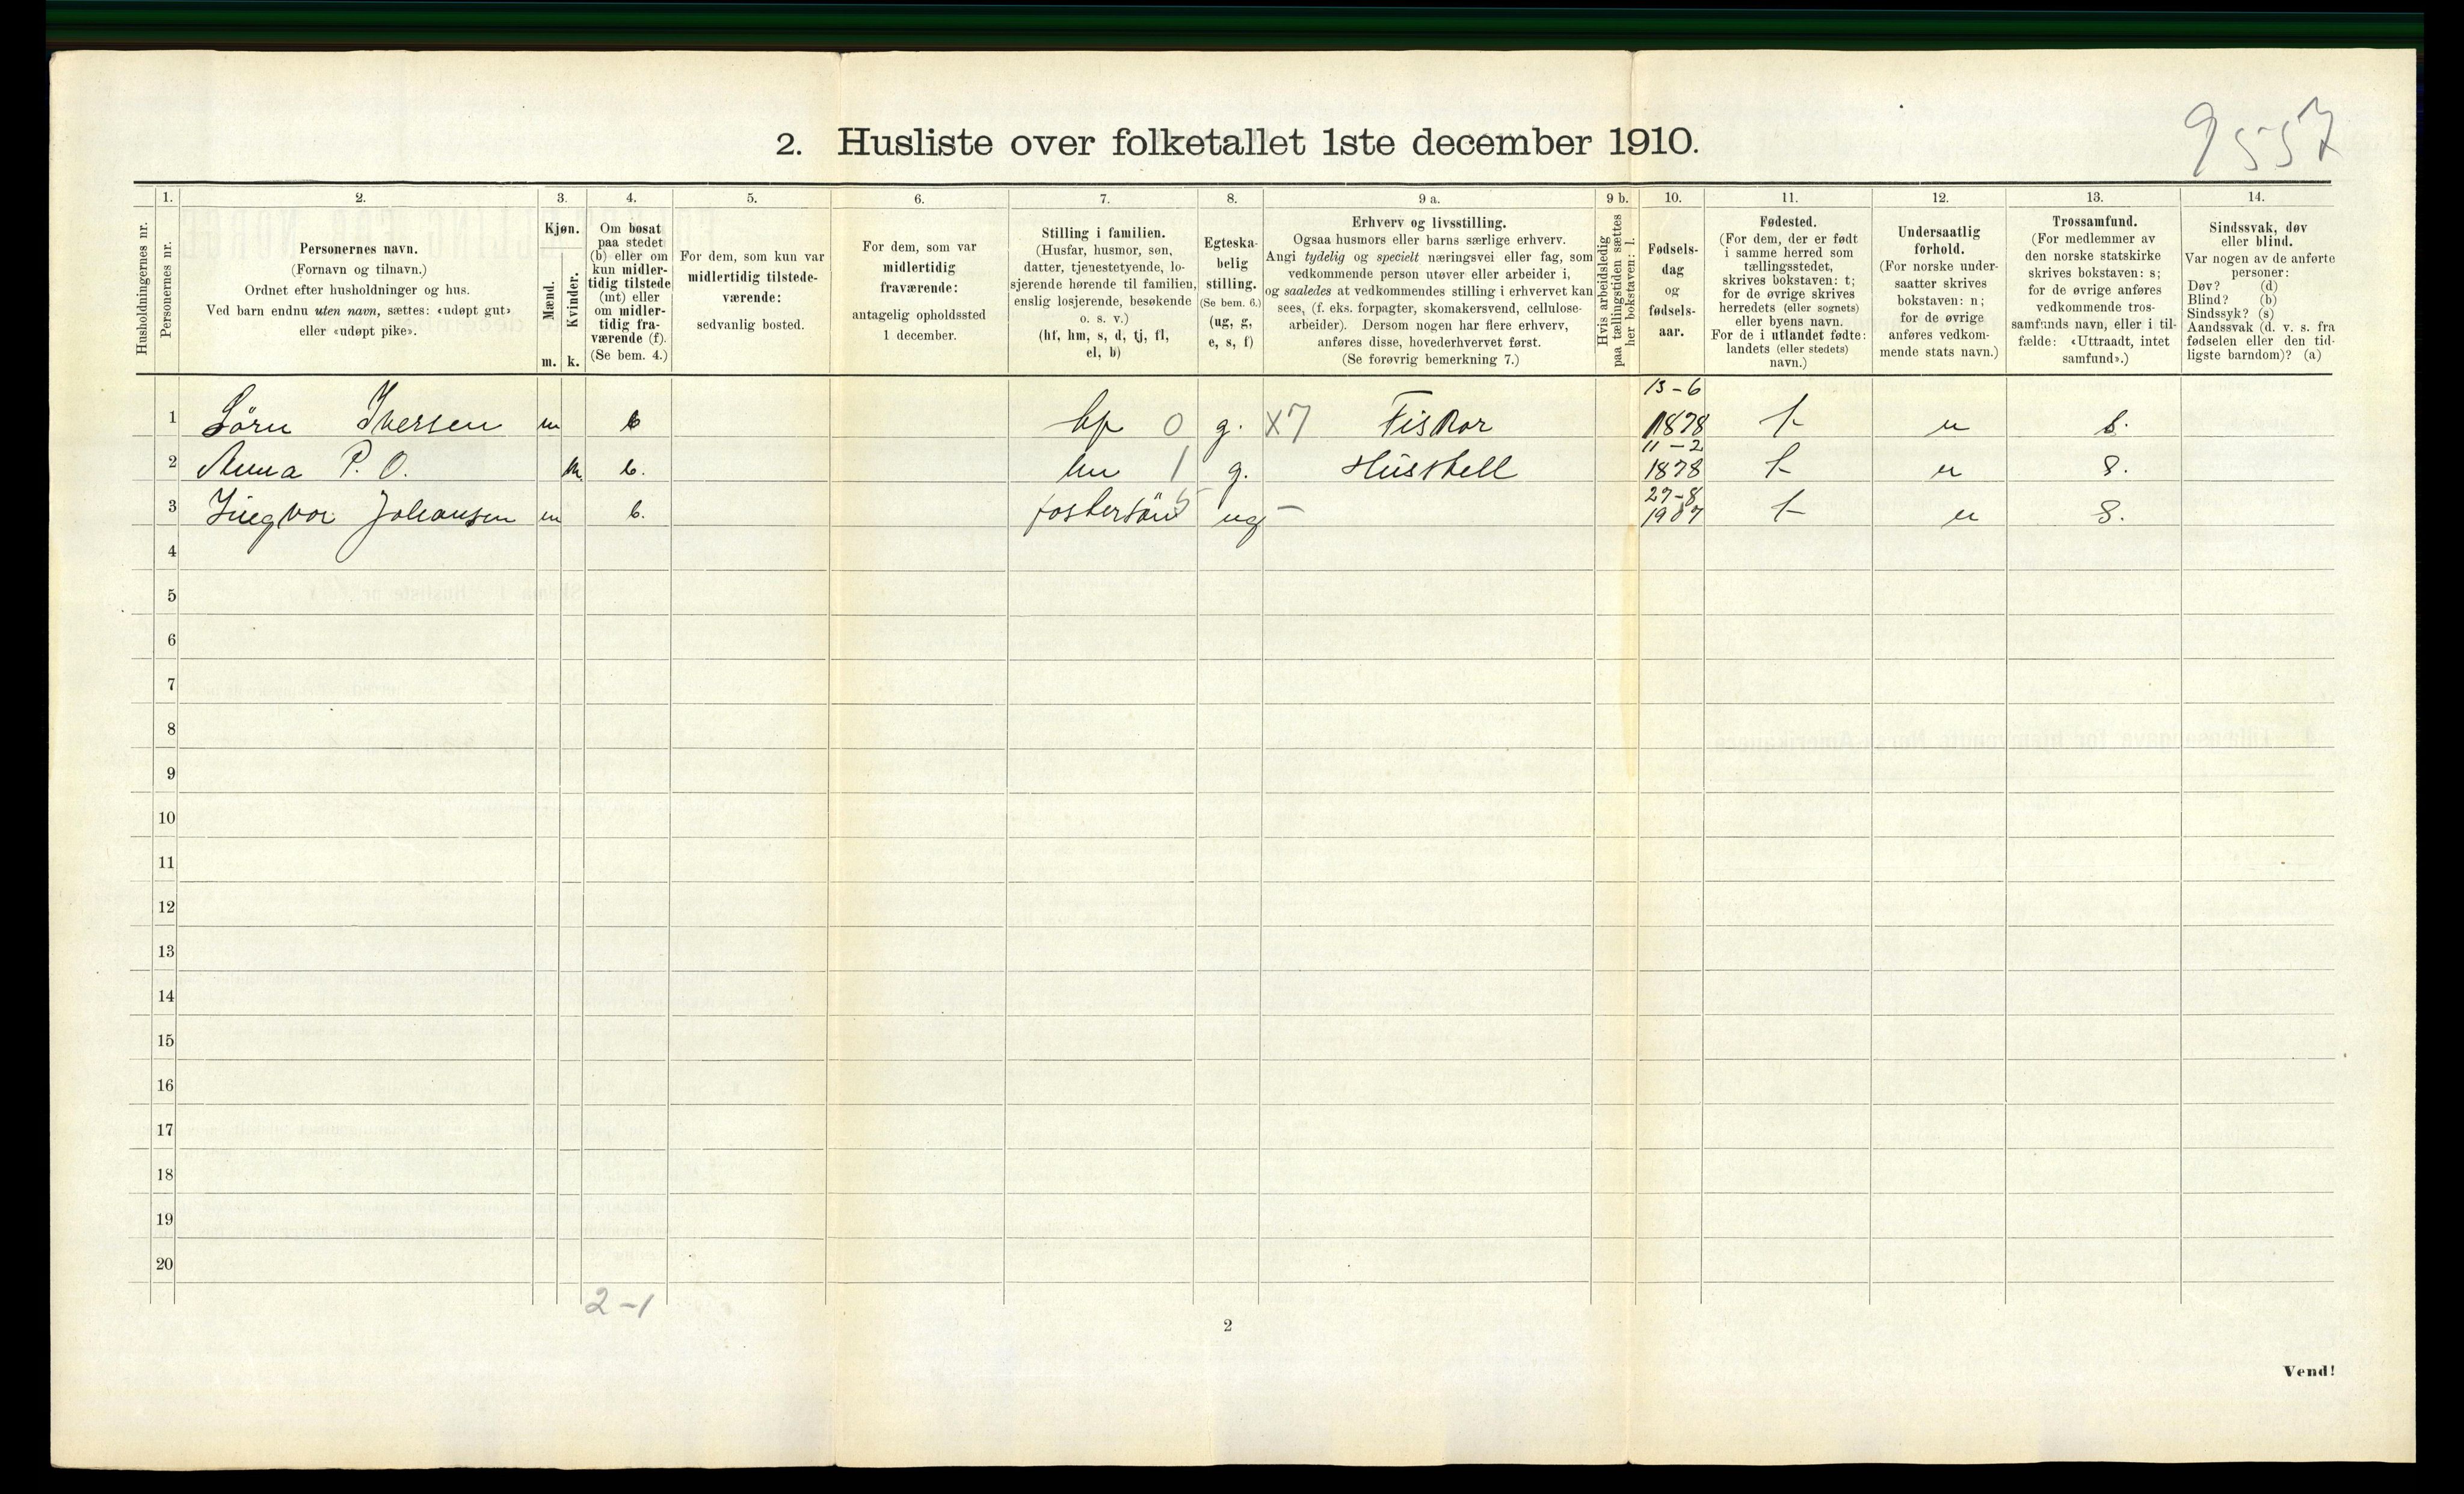 9557
2. Husliste over folketallet 1ste december 1910.
Husholdningernes nr.
1.
Personernes nr.
2.
Personernes navn.
(Fornavn og tilnavn.)
Ordnet efter husholdninger og hus.
Ved barn endnu uten navn, sættes: «udøpt gut»
eller «udøpt pike».
3.
Kjøn.
Mænd.
m.
Kvinder.
k.
4.
Om bosat
paa stedet
(b) eller om
kun midler-
tidig tilstede
(mt) eller
om midler-
tidig fra-
værende (f).
(Se bem. 4.)
5.
For dem, som kun var
midlertidig tilstede-
værende:
sedvanlig bosted.
6.
For dem, som var
midlertidig
fraværende:
antagelig opholdssted
1 december.
7.
Stilling i familien.
(Husfar, husmor, søn,
datter, tjenestetyende, lo-
sjerende hørende til familien,
enslig losjerende, besøkende
o. s. v.)
(hf, hm, s, d, tj, fl,
el, b)
8.
Egteska-
belig
stilling.
(Se bem. 6.)
(ug, g,
e, s, f)
9 a.
Erhverv og livsstilling.
Ogsaa husmors eller barns særlige erhverv.
Angi tydelig og specielt næringsvei eller fag, som
vedkommende person utøver eller arbeider i,
og saaledes at vedkommendes stilling i erhvervet kan
sees, (f. eks. forpagter, skomakersvend, cellulose-
arbeider). Dersom nogen har flere erhverv,
anføres disse, hovederhvervet først.
(Se forøvrig bemerkning 7.)
9 b.
Hvis arbeidsledig
paa tællingstiden sættes
her bokstaven: l.
10.
Fødsels-
dag
og
fødsels-
aar.
11.
Fødested.
(For dem, der er født
i samme herred som
tællingsstedet,
skrives bokstaven: t;
for de øvrige skrives
herredets (eller sognets)
eller byens navn.
For de i utlandet fødte:
landets (eller stedets)
navn.)
12.
Undersaatlig
forhold.
(For norske under-
saatter skrives
bokstaven: n;
for de øvrige
anføres vedkom-
mende stats navn.)
13.
Trossamfund.
(For medlemmer av
den norske statskirke
skrives bokstaven: s;
for de øvrige anføres
vedkommende tros-
samfunds navn, eller i til-
fælde: «Uttraadt, intet
samfund».)
14.
Sindssvak, døv
eller blind.
Var nogen av de anførte
personer:
Døv? (d)
Blind? (b)
Sindssyk? (s)
Aandssvak (d. v. s. fra
fødselen eller den tid-
ligste barndom)? (a)
1 Sörn Iversen m b hf 0 g. X7 Fisker 13-6 1878 t n s.
2 Anna P. O. k b. hm 1 g. Husstell 11-2 1878 t n s.
3 Ingvar Johansen m b. fostersön 5 ug - 27-8 1907 t n s.
4
5
6
7
8
9
10
11
12
13
14
15
16
17
18
19
20
2-1
2
Vend!